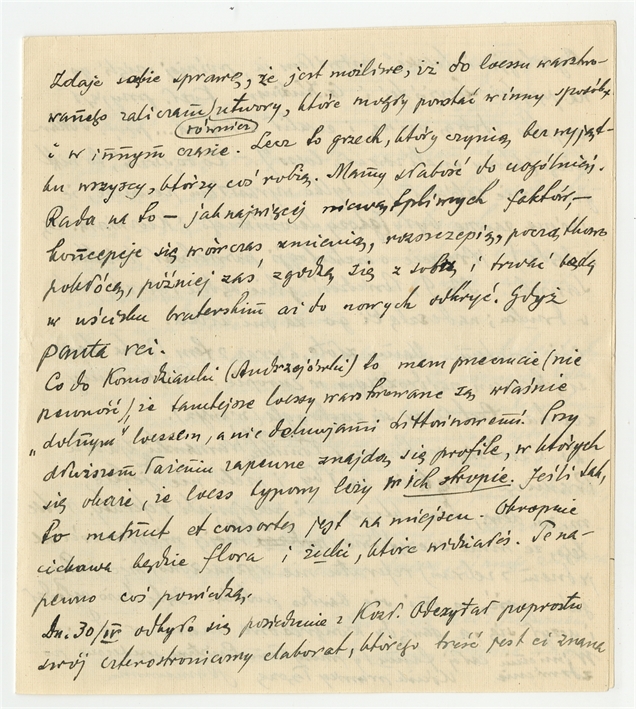 Zdaje sobie sprawę, że jest możliwe, iż do loessu warstwo-
wanego zaliczam utwory, które mogły powstać w inny sposób,
również
i w innym czasie. Lecz to grzech, który czynią bez wyjąt-
ku wszyscy, którzy coś robią. Mamy słabość do uogólnień.
Rada na to – jaknajwięcej niewątpliwych faktów, –
koncepcje się wówczas zmienią, rozszczepią, początkowo
pokłócą, później zaś zgodzą się z sobą i trwać będą
w uścisku braterskim aż do nowych odkryć. Gdyż
panta rei.
Co do Komodzianki (Andrzejówki) to mam przeczucie (nie
pewność), że tamtejsze loessy warstwowane są właśnie
„dolnym" loessem, a nie deluwjami Littorinowemi. Przy
dłuższem łażeniu zapewne znajdą się profile, w których
się okaże, że loess typowy leży w ich stropie. Jeśli tak,
to mamut et consortes jest na miejscu. Okropnie
ciekawa będzie flora i żuczki, które widziałeś. Te na-
pewno coś powiedzą.
Dn. 30/IV odbyło się posiedzenie z Kozł. Odczytał poprostu
swój czterostronicowy elaborat, którego treść jest ci znana